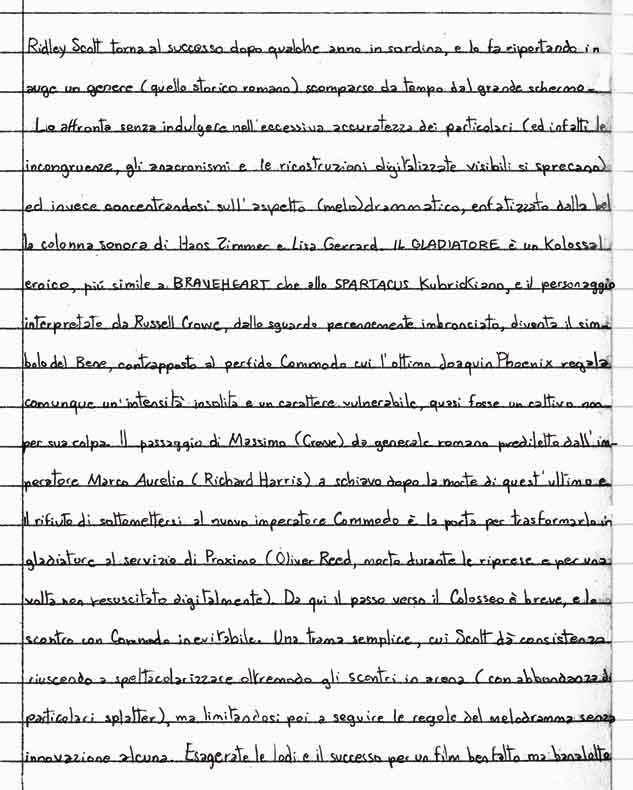 Ridley Scott torna al successo dopo qualche anno in sordina, e lo fa riportando in
auge un genere (quello storico romano) scomparso da tempo dal grande schermo.
Lo affronta senza indulgere nell'eccessiva accuratezza dei particolari (ed infatti le
incongruenze, gli anacronismi e le ricostruzioni digitalizzate visibili si sprecano)
ed invece concentrandosi sull'aspetto (melo)drammatico, enfatizzato dalla bel
la colonna sonora di Hans Zimmer e Lisa Gerrard. IL GLADIATORE è un Kolossal
eroico, più simile a BRAVEHEART che allo SPARTACUS Kubrickiano, e il personaggio
interpretato da Russell Crowe, dallo sguardo perennemente imbronciato, diventa il sim
bolo del Bene, contrapposto al perfido Commodo cui l'ottimo Joaquin Phoenix regala
comunque un'intensità insolita e un carattere vulnerabile, quasi fosse un cattivo non
per sua colpa. Il passaggio di Massimo (Crowe) da generale romano prediletto dall'im-
peratore Marco Aurelio (Richard Harris) a schiavo dopo la morte di quest'ultimo e
il rifiuto di sottomettersi al nuovo imperatore Commodo è la porta per trasformarlo in
gladiatore al servizio di Proximo (Oliver Reed, morto durante le riprese e per una
volta non resuscitato digitalmente). Da qui il passo verso il Colosseo è breve, e lo
scontro con Commodo inevitabile. Una trama semplice, cui Scott dà consistenza
riuscendo a spettacolarizzare oltremodo gli scontri in arena (con abbondanza di
particolari splatter), ma limitandosi poi a seguire le regole del melodramma senza
innovazione alcuna. Esagerate le lodi e il successo per un film ben fatto ma banalotto